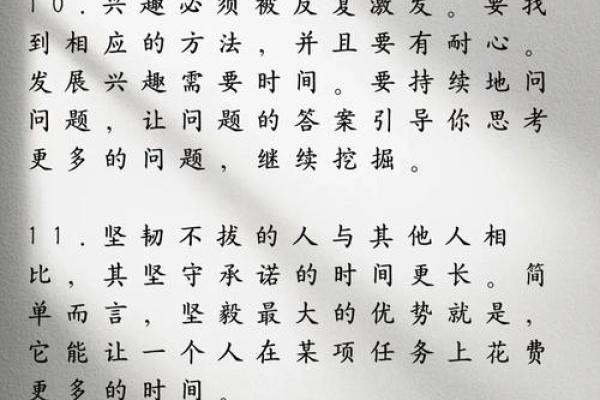 10.兴趣必须被反复激发。要找
到相应的方法,并且要有耐心。
发展兴趣需要时间。要持续地问
问题,让问题的答案引导你思考
更多的问题,继续挖掘。
11.坚韧不拔的人与其他人相
比,其坚守承诺的时间更长。简
单而言,坚毅最大的优势就是,
它能让一个人在某项任务上花费
更多的时间。